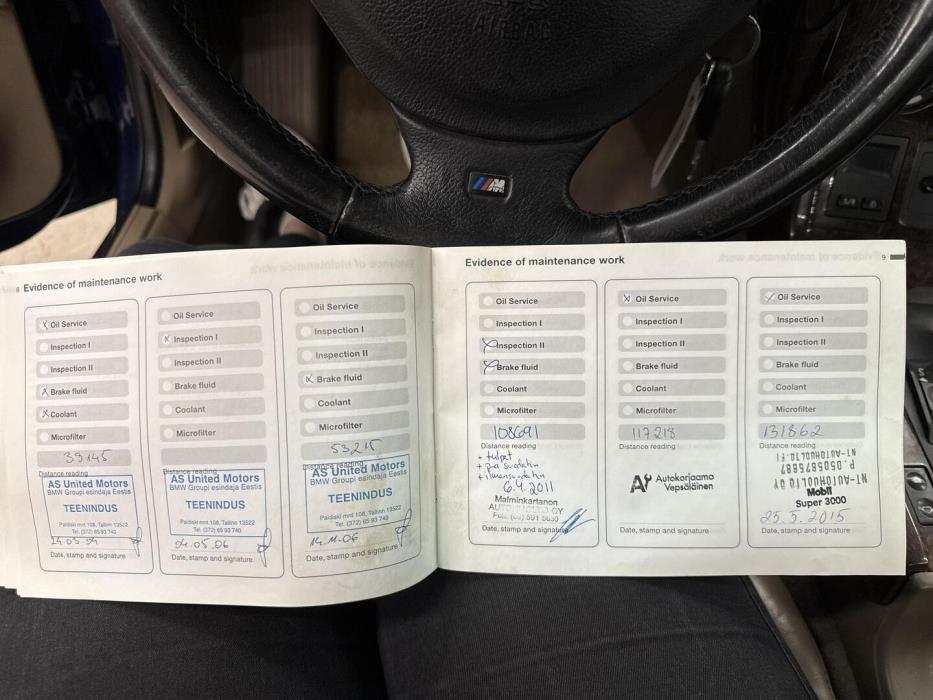 AIRBAG
8 Evidence of maintenance work
Oil Service
Inspection I
Inspection II
Brake fluid
Coolant
Microfilter
39145
Distance reading
AS United Motors
BMW Groupi esindaja Eestis
TEENINDUS
Paldiski mnt 108, Tallinn 13522
Tel. (372) 65 93 740
Date, stamp and signature
Oil Service
Inspection I
Inspection II
Brake fluid
Coolant
Microfilter
Distance reading
AS United Motors
BMW Groupi esindaja Eestis
TEENINDUS
Paldiski mnt 108, Tallinn 13522
Tel. (372) 65 93 740
04.05.06
Date, stamp and signature
Oil Service
Inspection I
Inspection II
Brake fluid
Coolant
Microfilter
53215
Distance reading
AS United Motors
BMW Groupi esindaja Eestis
TEENINDUS
Paldiski mnt 108, Tallinn 13522
Tel. (372) 65 93 740
14.11.06
Date, stamp and signature
Evidence of maintenance work 9
Oil Service
Inspection I
Inspection II
Brake fluid
Coolant
Microfilter
108691
Distance reading
+ tulpat
6.4.2011
Malminkartanon
AUTOHUOLTO OY
Date, stamp and signature
Oil Service
Inspection I
Inspection II
Brake fluid
Coolant
Microfilter
117218
Distance reading
Autokorjaamo
Vepsäläinen
Date, stamp and signature
Oil Service
Inspection I
Inspection II
Brake fluid
Coolant
Microfilter
131862
Distance reading
NT-AUTOHUOLTO OY
P. 0505675687
NT-AUTOHUOLTO.FI
Mobil
Super 3000
25.5.2015
Date, stamp and signature